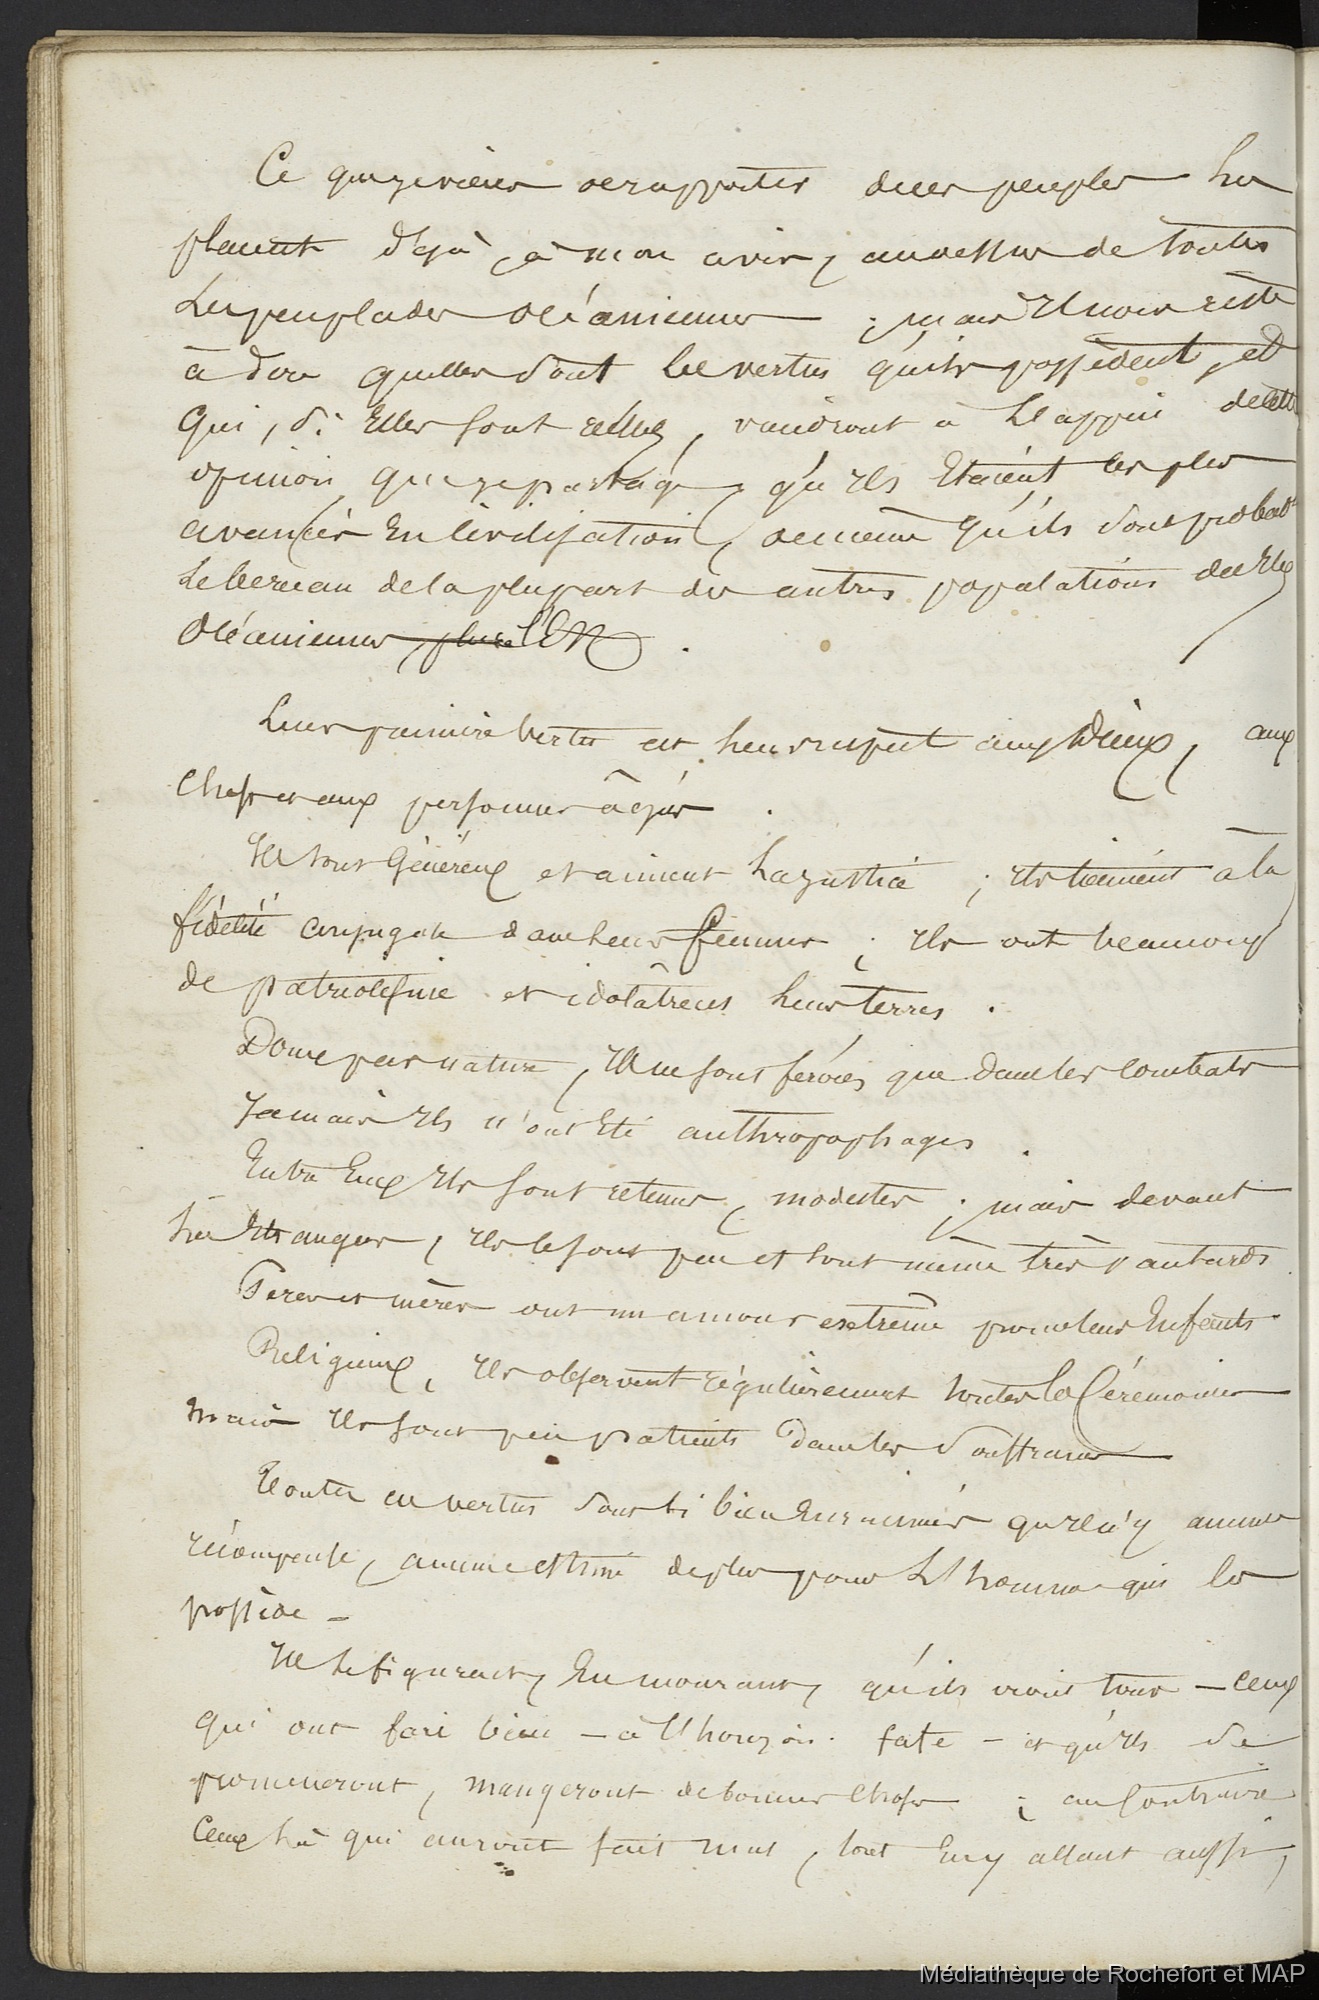 Ce que je viens de rapporter de ces peuples les
placent déjà, à mon avis, au dessus de toutes
les peuplades océaniennes ; mais il nous reste
à dire quelles sont les vertus qu'ils possèdent, et
qui, si elles sont réelles, viendront à l'appui de cette
opinion que je partage, qu'ils étaient les plus
avancés en civilisation, de même qu'ils sont probabt
le berceau de la plupart des autres populations dites
océaniennes
Leur première vertu est leur respect aux Dieux, aux
chefs et aux personnes âgées.
Ils sont généreux et aiment la justice ; ils tiennent à la
fidélité conjugale dans leurs femmes ; ils ont beaucoup
de patriotisme et idolâtrent leurs terres.
Doux par nature, ils ne sont féroces que dans les combats
Jamais ils n'ont été anthropophages.
Entre eux ils sont retenus, modestes ; mais devant
les étrangers, ils le sont peu et sont même très vantards.
Pères et mères ont un amour extrême pour leurs enfants.
Religieux, ils observent régulièrement toutes les Cérémonies
mais ils sont peu patients dans les souffrances
Toutes ces vertus sont si bien enracinées qu'il n'y aucune
récompense, aucune estime de plus pour l'homme qui les
possède –
Ils se figurent, en mourant, qu'ils iront tous – ceux
qui ont fait bien – à l'horizon. fate – et qu'ils se
promèneront, mangeront de bonnes choses ; au contraire
ceux là qui auront fait mal, tout en y allant aussi,
Médiathèque de Rochefort et MAP